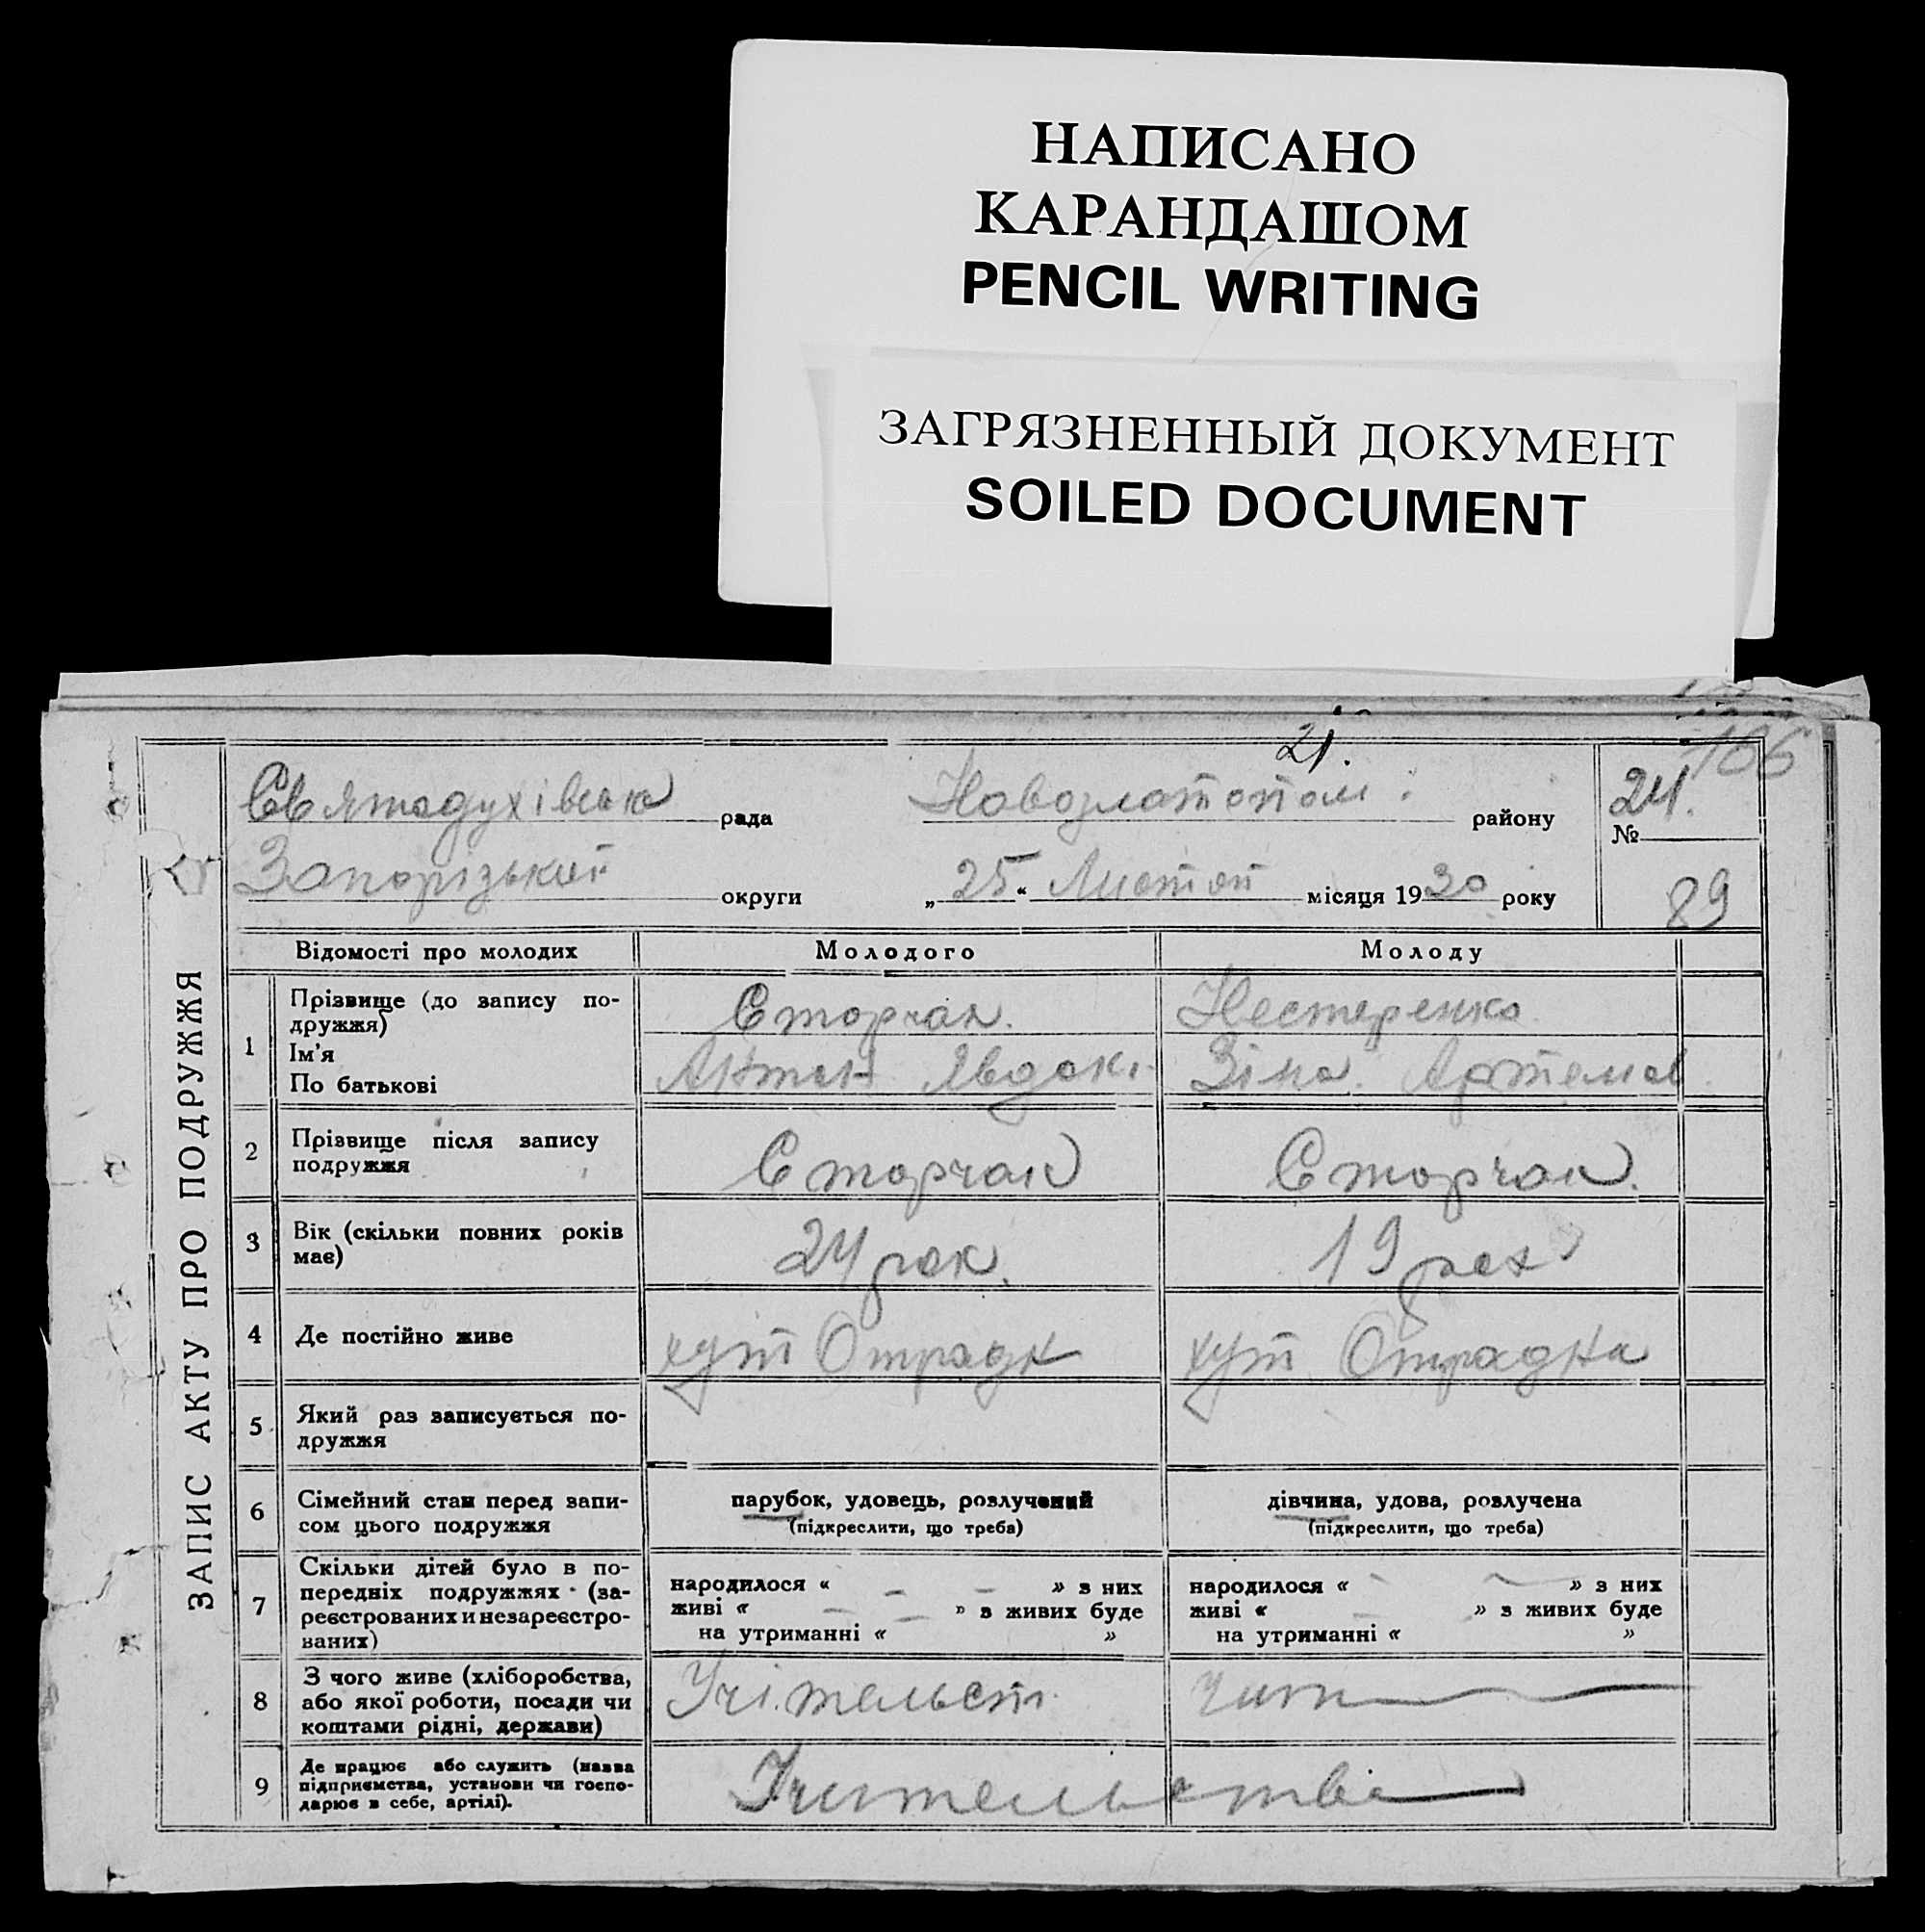 НАПИСАНО
КАРАНДАШОМ
PENCIL WRITING
ЗАГРЯЗНЕННЫЙ ДОКУМЕНТ
SOILED DOCUMENT
ЗАПИС АКТУ ПРО ПОДРУЖЖЯ
21.
106
Святодухівська рада Новозлатопол району
24.
№
Запорізької округи „25“ Листоп місяця 1930 року
89
Відомості про молодих Молодого Молоду
1 Прізвище (до запису по- Сторчак. Нестеренко
дружжя)
Ім'я Антон Явдокі. Зіна. Артемов
По батькові
2 Прізвище після запису Сторчак Сторчак.
подружжя
3 Вік (скільки повних років 24 рок. 19 рок
має)
4 Де постійно живе хут Отрадн хут Отрадна
5 Який раз записується по-
дружжя
6 Сімейний стан перед запи- парубок, удовець, розлучений дівчина, удова, розлучена
сом цього подружжя (підкреслити, що треба) (підкреслити, що треба)
7 Скільки дітей було в по-
передніх подружжях (за- народилося « — — » з них народилося « — — » з них
реєстрованих и незареєстро- живі « — — » з живих буде живі « — » з живих буде
ваних) на утриманні « » на утриманні « »
8 З чого живе (хліборобства, Учітельст.
або якої роботи, посади чи
коштами рідні, держави)
9 Де працює або служить (назва Учительства
підприємства, установи чи госпо-
дарює в себе, артілі).